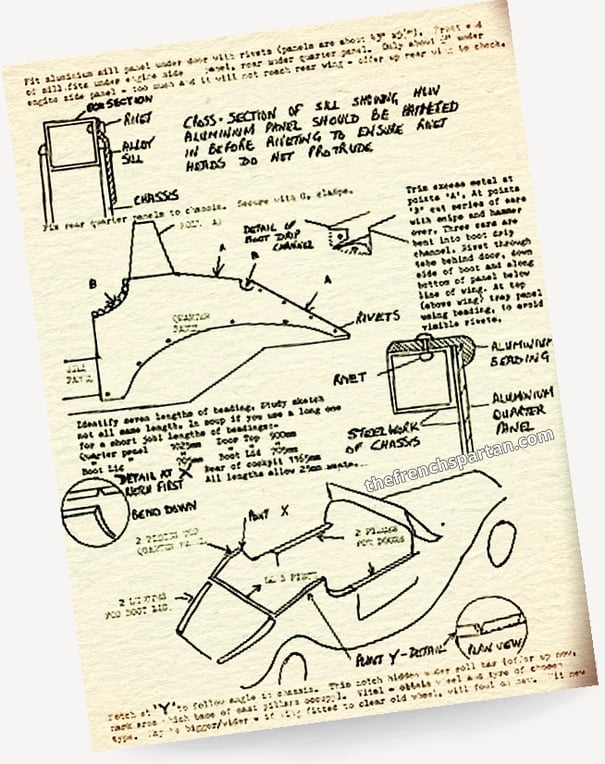 Fit aluminium sill panel under door with rivets (panels are about 43" x5½"). Front end
of sill fits under engine side panel, rear under quarter panel. Only about under
engine side panel - too much and it will not reach rear wing - offer up rear to check.
BOX SECTION
RIVET
ALLOY
SILL
CHASSIS
CROSS-SECTION OF SILL SHOWING HOW
ALUMINIUM PANEL SHOULD BE HAMMERED
IN BEFORE RIVETING TO ENSURE RIVET
HEADS DO NOT PROTRUDE
Fix rear quarter panels to chassis. Secure with G. clamps.
DETAIL OF
BOOT DRIP
CHANNEL
Trim excess metal at
points 'A'. At points
'B' cut series of ears
with snips and hammer
over. Three ears are
bent into boot drip
channel. Rivet through
tube behind door, down
side of boot and along
bottom of panel below
line of wing. At top
(above wing) trap panel
using beading, to avoid
visible rivets.
A
B
A
B
QUARTER
PANEL
RIVETS
SILL
PANEL
ALUMINIUM
BEADING
RIVET
ALUMINIUM
QUARTER
PANEL
STEELWORK
OF CHASSIS
Identify seven lengths of beading. Study sketch
not all same length. In soup if you use a long one
for a short job! Lengths of beading:-
Quarter panel 1025mm Door Top 900mm
" " Boot Lid 705mm
Boot Lid 705mm Rear of cockpit
All lengths allow 25mm waste.
thefrenchspartan.com
DETAIL AT X
NOTCH FIRST
BEND DOWN
POINT X
2 PIECES TOP
QUARTER PANEL
2 PIECES
FOR DOORS
2 LENGTHS
FOR BOOT LID.
POINT Y-DETAIL
PLAN VIEW
Notch at 'Y' to follow angle in chassis. This notch hidden under roll bar (offer up now,
mark area which base of seat pillars occupy). Vital - obtain wheel and tyre of chosen
type. May be bigger/wider - if wing fitted to clear old wheel, will foul on new. Fit new